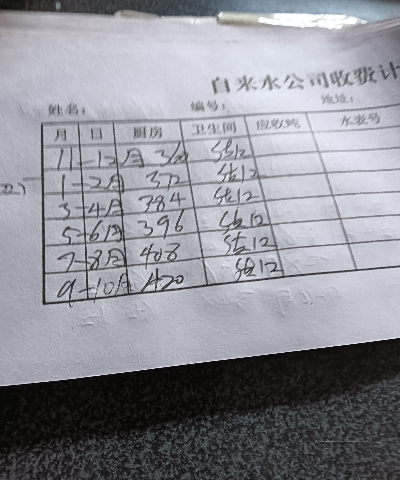 自来水公司收费计
姓名： 编号： 地址：
月 日 厨房 卫生间 应收吨 水表号
11-12月 360 12
1-2月 372 12
3-4月 384 12
5-6月 396 12
7-8月 408 12
9-10月 420 12